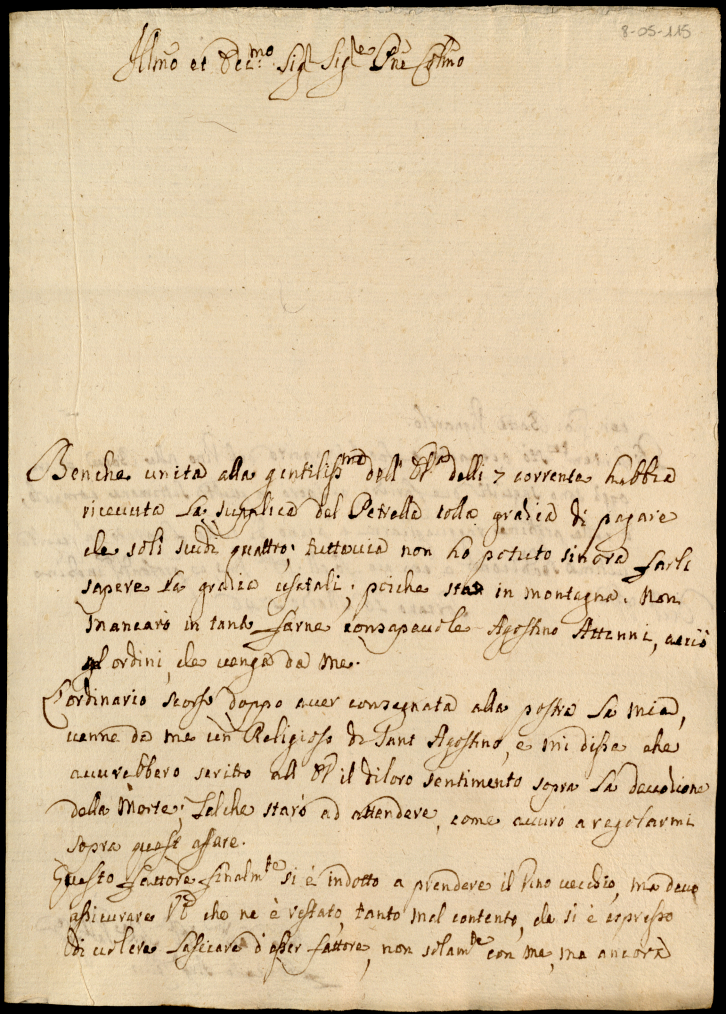 8-05-115
Illmo et Sig.r Sig.re Pne Colmo
Benche unita alla gentiliss.ma dell' V.S. delli 7 corrente habbia
ricevuta la supplica del Petrella colla gratia di pagare
che soli scudi quattro; tuttavia non ho potuto sinora farli
sapere la gratia, poiche sta in montagna. Non
mancarò in tanto farne consapevole Agostino Attanni, acciò
gl'ordini, che venga da me.
L'ordinario scorso doppo aver consegnata alla posta la mia,
venne da me un Religioso di Sant Agostino, e mi disse che
avurebbero scritto all V.S. il di loro sentimento sopra la devotione
della Morte; Talche starò ad attendere, come avurò a regolarmi
sopra quest affare.
Questo fattore finalm.te si è indotto a prendere il vino vecchio, ma devo
assicurare V.S. che ne è restato, tanto mal contento, che si è espresso
di volere lasciare d'esser fattore, non solam.te con me, ma ancora